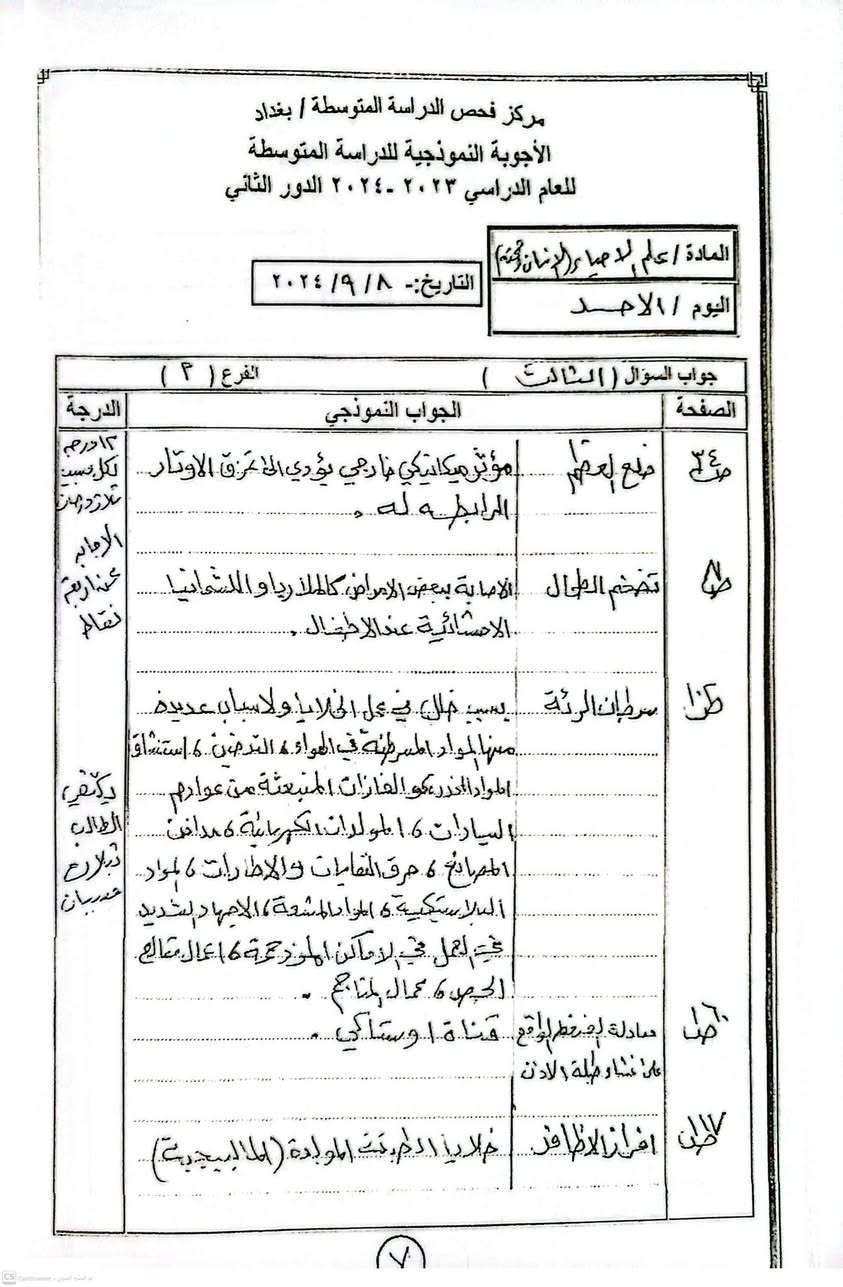 مركز فحص الدراسة المتوسطة / بغداد
الأجوبة النموذجية للدراسة المتوسطة
للعام الدراسي ٢٠٢٣ -٢٠٢٤ الدور الثاني
المادة / علم الاحياء (الانسان وصحته)
اليوم / الاحد
التاريخ:- ٨ / ٩ / ٢٠٢٤
جواب السؤال ( الثالث ) الفرع ( ٢ )
الصفحة الجواب النموذجي الدرجة
ص٣٤ خلع العظم مؤثر ميكانيكي خارجي يؤدي الى تمزق الاوتار
الرابطه له .
١٢ درجه
لكل سبب
ثلاث درجات
الاجابه
عن اربعة
نقاط
ص٨ تضخم الطحال الاصابة ببعض الامراض كالملاريا واللشمانيا
الاحشائية عند الاطفال .
سرطان الرئة بسبب خلل في عمل الخلايا ولاسباب عديدة
منها المواد المسرطنة في الهواء ، التدخين ، استنشاق
المواد المخدرة والغازات المنبعثة من عوادم
السيارات ، المولدات الكهربائية ، مداخن
المصانع ، حرق النفايات والاطارات ، المواد
البلاستيكية ، المواد المشعة ، الاجهاد الشديد
في العمل في الاماكن المزدحمة ، عمال مقالع
الحصى ، عمال المناجم .
يكتفي
الطالب
بثلاث
مسببات
معادلة الضغط الواقع قناة اوستاكي .
على غشاء طبلة الاذن
ص١١٧ افراز الاظافر خلايا الطبقة المولدة (الملبيجية)
٧
CS